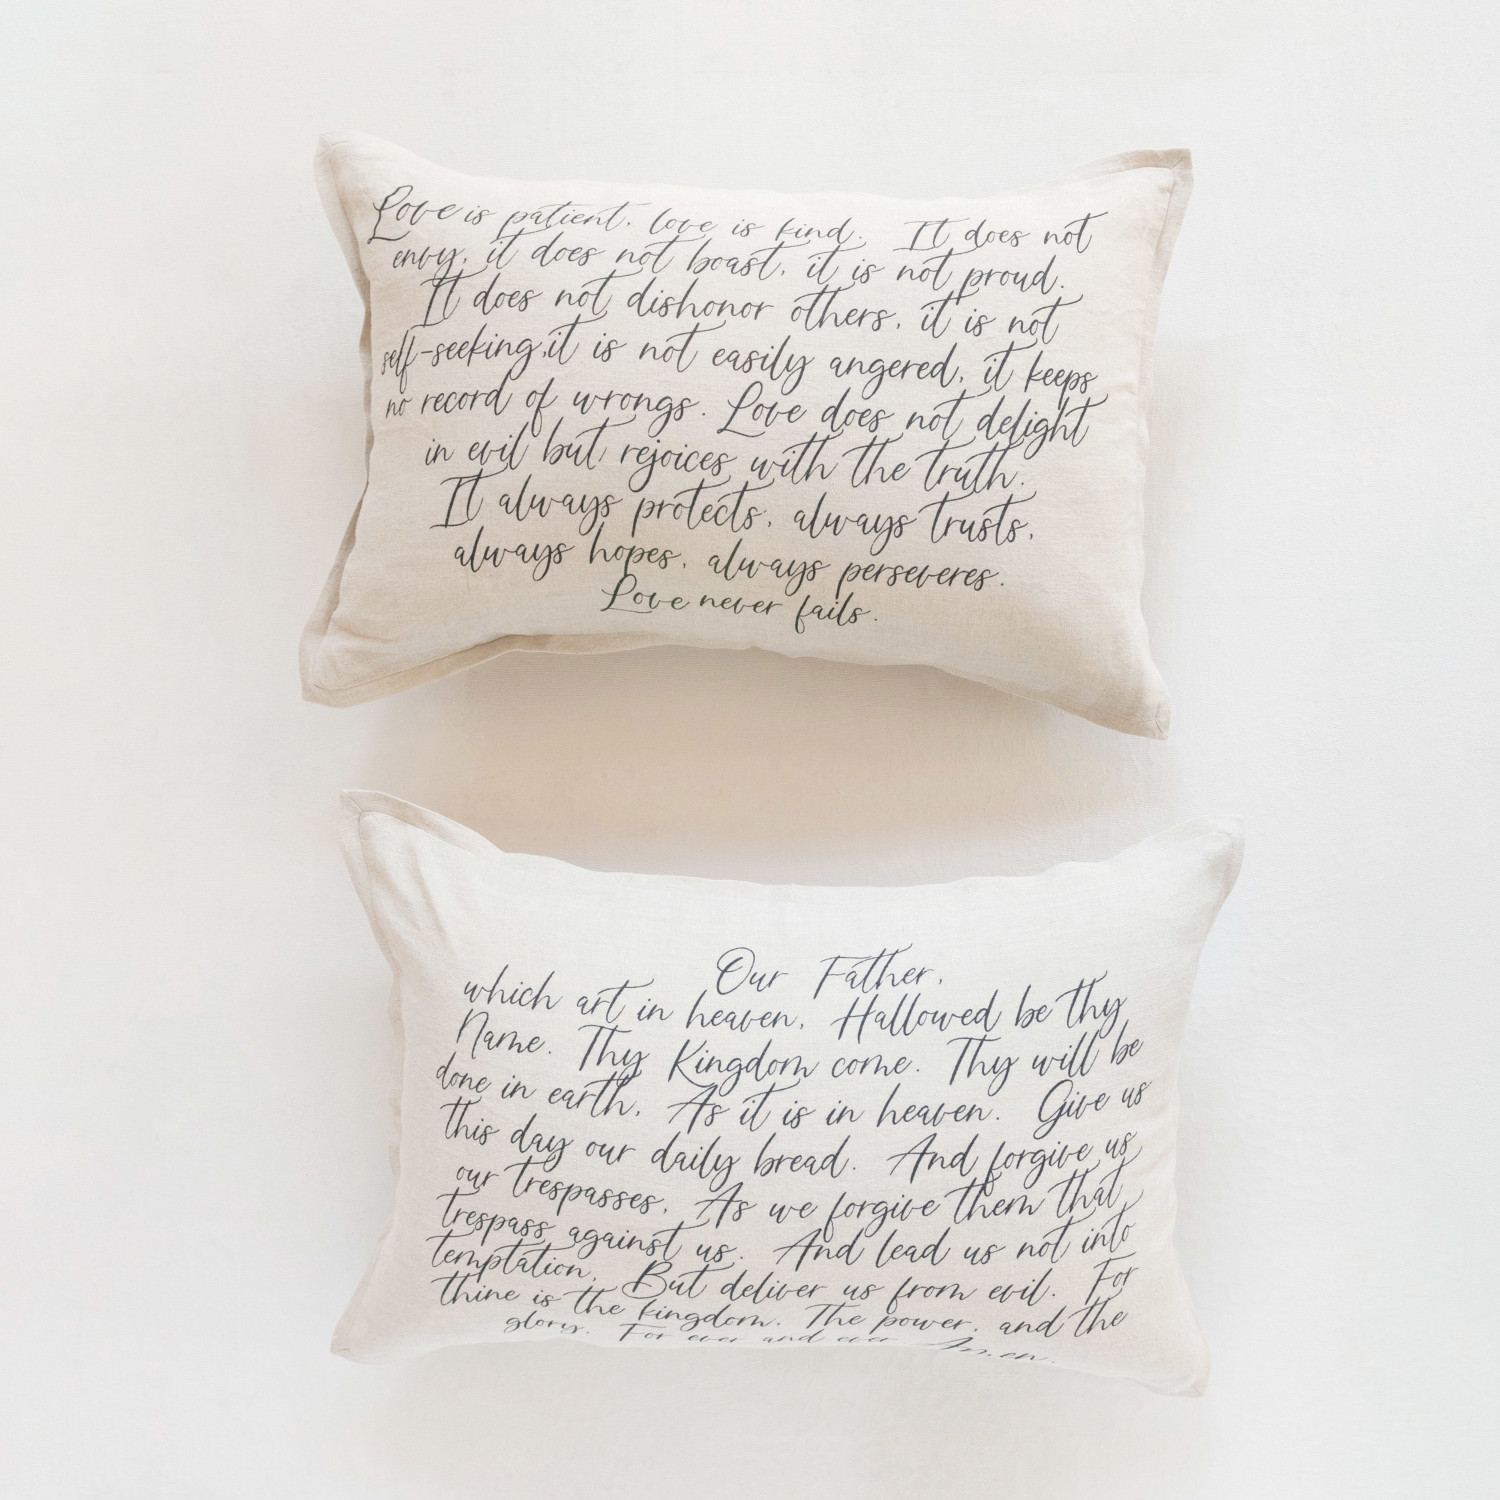 Love is patient, love is kind. It does not
envy, it does not boast, it is not proud.
It does not dishonor others, it is not
self-seeking,it is not easily angered, it keeps
no record of wrongs. Love does not delight
in evil but rejoices with the truth.
It always protects, always trusts,
always hopes, always perseveres.
Love never fails.
Our Father,
which art in heaven, Hallowed be thy
Name. Thy Kingdom come. Thy will be
done in earth, As it is in heaven. Give us
this day our daily bread. And forgive us
our trespasses, As we forgive them that
trespass against us. And lead us not into
temptation, But deliver us from evil. For
thine is the kingdom, The power, and the
glory, For ever and ever Amen.